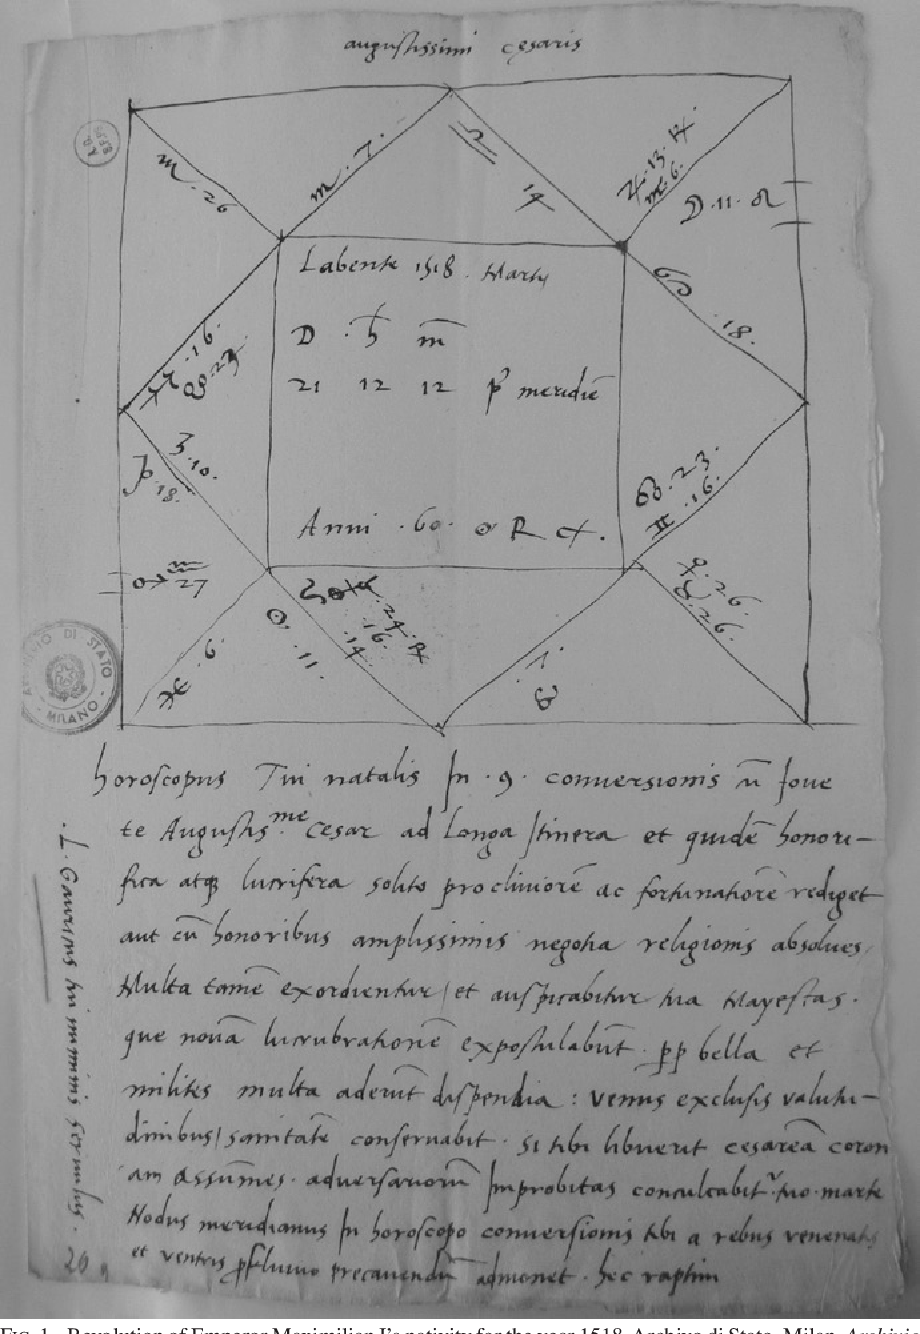 augustissimi cesaris
♏ · 26
♏ · 7 ·
♎ 14
♃ · 13 · ℞
♍ · 6 ·
☽ · 11 · ♌
♋ · 18 ·
♐ · 16 ·
☋ · 23
♄ · 10 ·
♑ · 18 ·
♂ ♒ 27
♓ · 6 ·
☉ · 11 ·
· 24 · ℞
16 ·
· 14 ·
♉ · 7 ·
☊ · 23 ·
♊ · 16 ·
♀ · 26 ·
· 26 ·
Labente 1518 · Martij
D · h̄ m̄
21 12 12 p̄ meridiē
Anni · 60 · ☉ R
horoscopus Tui natalis In · 9 · conversionis cū Ioue
te Augustis.me Cesar ad Longa Itinera et quidē honori–
fica atq̨ lucrifera solito procliviorē ac fortunatiorē rediget
aut cū honoribus amplissimis negotia religionis absolues.
Multa tamē exordientur / et auspicabitur tua Mayestas ·
que novā lucubrationē expostulabūt · p̱p̱ bella et
milites multa aderūt dispendia : venus exclusis valitu–
dinibus / sanitatē conservabit · Si tibi libuerit cesareā coron
am assūmes · adversariorū Improbitas conculcabit.r tuo marte
Nodus meridianus In horoscopo conversionis tibi a rebus venenatis
et ventris p̱fluvio precavendū admonet · hec raptim
· L · Gauricus tui numinis servulus ·
20
ARCHIVIO DI STATO - MILANO -
FIG. 1. Revolution of Emperor Maximilian I's nativity for the year 1518. Archivio di Stato, Milan, Archivio